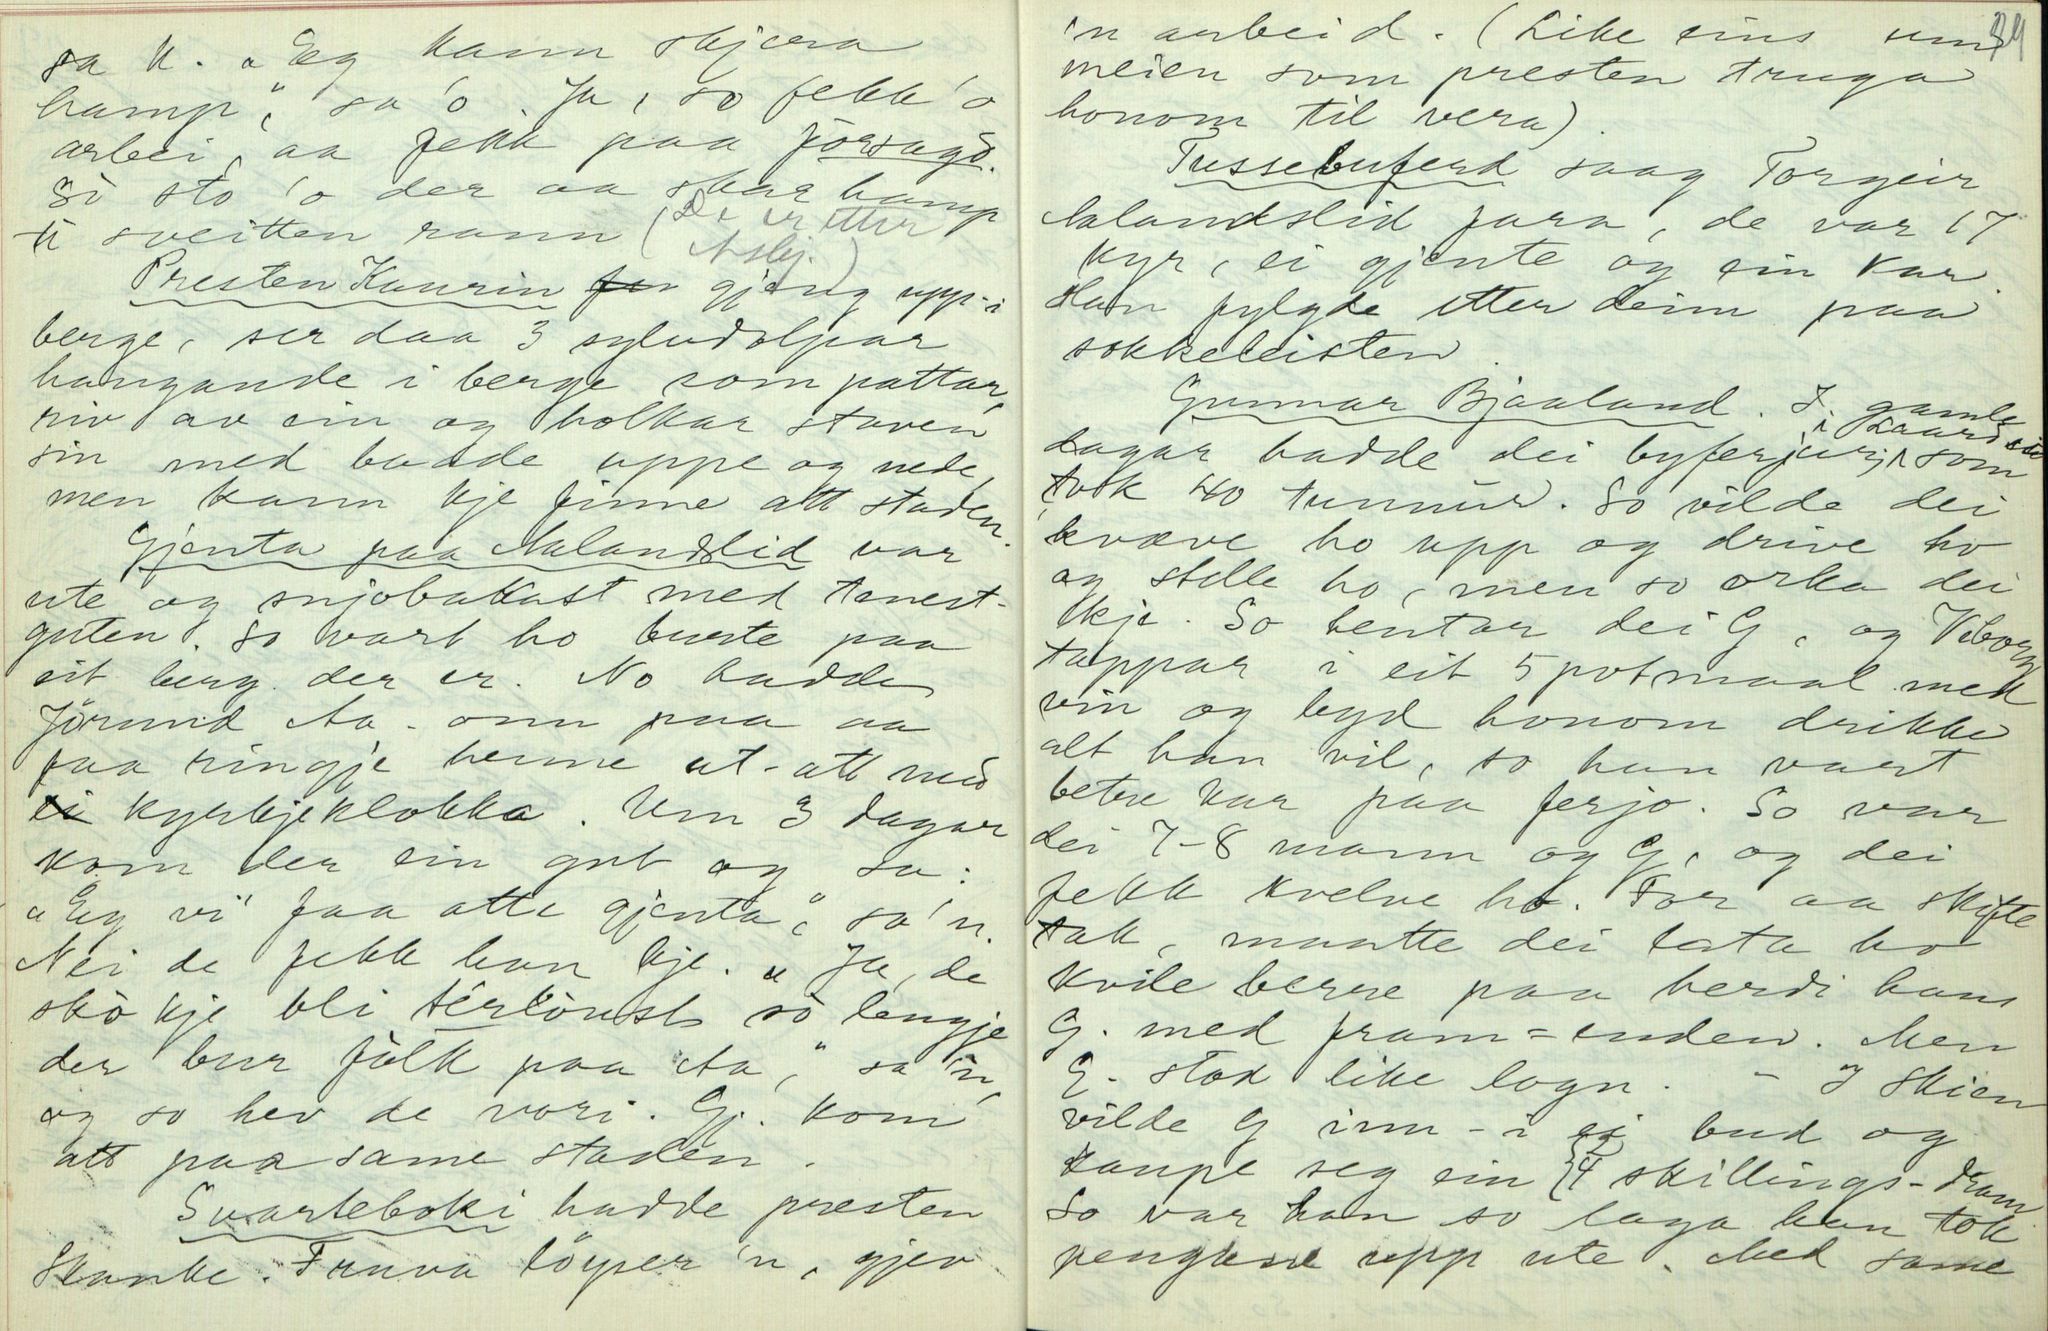 sa K. "Eg kann skjæra
hamp," sa 'o. Ja, so fekk 'o
arbei, aa fekk paa forsagd.
So sto 'o der aa skar hamp
ti sveitten rann (De er etter
Asbj.)
Presten Kaurin for gjeng upp-i
berge, ser daa 3 sylvdolpar
hangande i berge som pattar,
riv av ein og holkar staven
sin med baade uppe og nede,
men kann kje finne att staden.
Gjenta paa Aalandslid var
ute og snjobakast med tenest-
guten. So vart ho burte paa
eit berg der er. No hadde
Jörund Aa- onn paa aa
faa ringje henne ut-att med
ei kyrkjeklokka. Um 3 dagar
kom der ein gut og sa:
"Eg vi' faa atte gjenta," sa'n.
Nei de fekk han kje. "Ja, de
sko kje bli térkönst so lengje
der bur folk paa Aa," sa'n,
og so hev de vori. Gj. kom
att paa same staden.
Svarteboki hadde presten
Skanke. Fruva löyser 'n, gjev
'n arbeid. (Like eins um 34
meien som presten truga
honom til vera).
Tussebuferd saag Torgeir
Aalandslid fara, de var 17
kyr, ei gjente og ein kar.
Han fylgde etter deim paa
sokkeleisten.
Gunnar Bjaaland. I gamle
dagar hadde dei byferjur i Laardal som
tok 40 tunnur. So vilde dei
kvæve ho upp og drive ho
og stelle ho, men so orka dei
kje. So hentar dei G, og Viborg
tappar i eit 5 potmaal med
vin og byd honom drikke
alt han vil, so han vart
betre kar paa ferjo. So var
dei 7-8 mann og G, og dei
fekk kvelve ho. For aa skifte
tak, maatte dei lata ho
kvile berre paa herdi hans
G. med fram=enden. Men
G. stod like logn. - I Skien
vilde G inn-i ei bud og
kaupe seg ein 4 skillings-dram
So var han so laga han tok
pengane upp ute. Med same